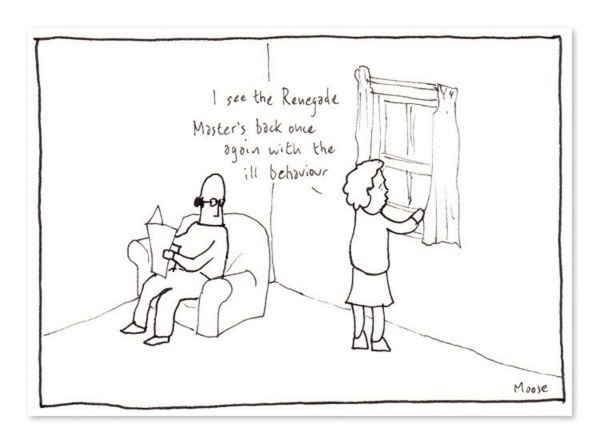 I see the Renegade
Master's back once
again with the
ill behaviour
Moose